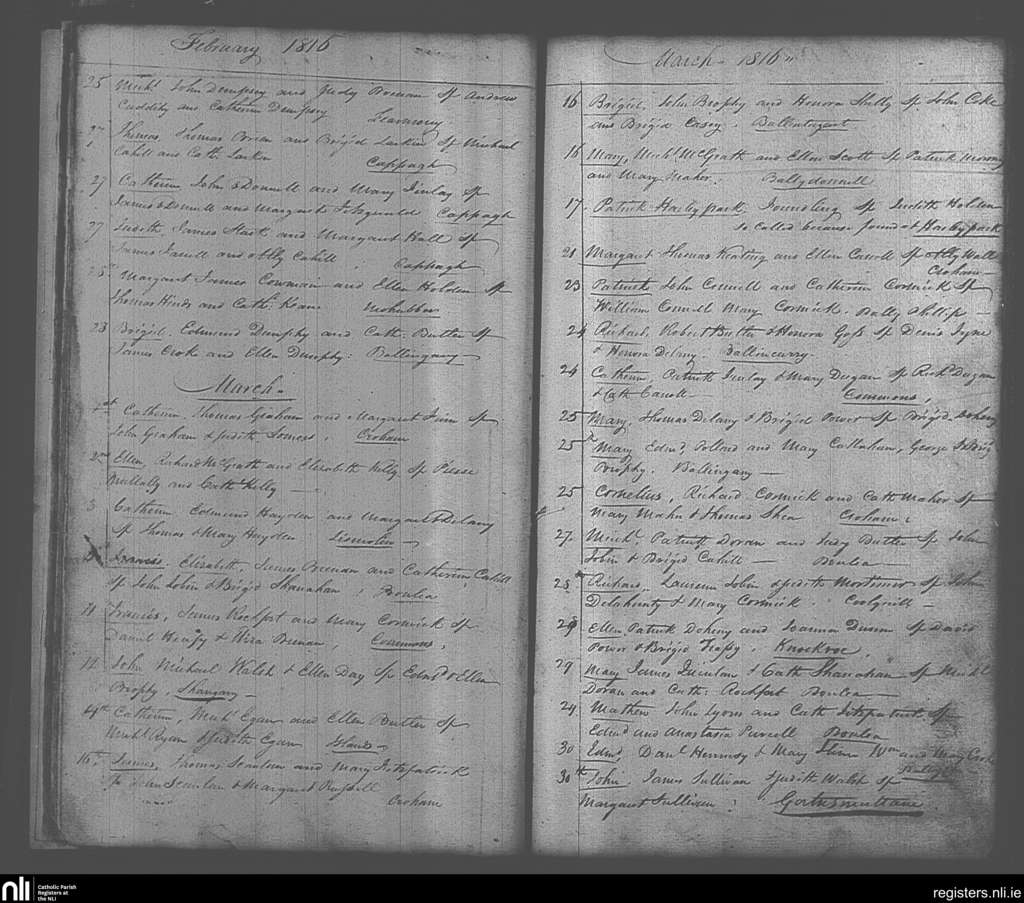 February 1816
25 Mich.l John Dempsey and Judy Brenan Sp Andrew
Cuddihy and Catherine Dempsey
27 Thomas, Thomas Brien and Brigid Larkin Sp Michael
Cahill and Cath. Larkin Cappagh
27 Catherine John ODonnell and Mary Finlay Sp
James ODonnell and Margaret Fitzgerald Cappagh
27 Judith James Stack and Margaret Hall Sp
James and Abby Cahill Cappagh
25 Margaret James Cowman and Ellen Holden Sp
Thomas Hinds and Cath. Keane
23 Brigid Edmund Dunphy and Cath. Butler Sp
James Crook and Ellen Dunphy: Ballingarry
March
1st Catherine, Thomas Graham and Margaret Finn Sp
John Graham & Judith Croham
2nd Ellen, Richard McGrath and Elizabeth Kelly Sp Pierse
Mullally and Cath Kelly
3 Catherine Edmund Hayden and Margaret Delany
Sp Thomas & Mary Hayden Lismolin
Francis, Elizabeth, James Brenan and Catherine Cahill
Sp John Tobin & Brigid Shanahan, Boulea
11 Francis, James Rochfort and Mary Cormick Sp
Daniel and Brenan, Commons,
11 John Michael Walsh & Ellen Day Sp Edmd & Ellen
Brophy. Shangarry
Catherine, Mich.l Egan and Ellen Butler Sp
Mich.l Ryan & Judith Egan Islands
16 James, Thomas Scanlan and Mary Fitzpatrick
Sp Scanlan & Margaret Russell
Croham
March 1816
16 Brigid, John Brophy and Honora Shelly Sp John Coke
and Brigid Casey.
16 Mary, Mich.l McGrath and Ellen Scott Sp Patrick
and Mary Maher. Ballydonnell
17. Patrick Harleypark, Foundling Sp Judith Holden
so called because found at Harleypark
21 Margaret Thomas Keating and Ellen Carroll Sp Abby Wall
Croham
23 Patrick John Connell and Catherine Cormick Sp
William Connell Mary Cormick. Ballyphilip
24 Richard, Robert Butler & Honora Goss Sp Denis
& Honora Delany. Ballincurry.
24 Catherine, Patrick Finlay & Mary Dugan Sp Rich.d Dugan
& Cath Carroll Commons,
25 Mary, Thomas Delany & Brigid Power Sp Brigid Doheny
25th Mary Edmd. Pollard and Mary Callahan, George & Brig
Brophy. Ballingarry
25 Cornelius, Richard Cormick and Cath Maher Sp
Mary Maher & Thomas Shea Croham
27. Mich.l Patrick Doran and Judy Butler Sp John
Tobin & Brigid Cahill Boulea
28th Richard, Laurence Tobin & Judith Mortimer Sp John
Delahunty & Mary Cormick Coolquill
29 Ellen Patrick Doheny and Joanna Sp David
Power & Brigid Knockroe,
29 Mary James Quinlan & Cath Shanahan Sp Mich.l
Doran and Cath: Rochfort Boulea
24 Mathew John Lyons and Cath Fitzpatrick Sp
Edmd and Anastasia Purcell Boulea
30 Edmd, Danl Hennesy & Mary Wm and Mary
30th John, James Sullivan & Judith Walsh Sp
Margaret Sullivan:
nli
Catholic Parish
Registers at
the NLI
registers.nli.ie